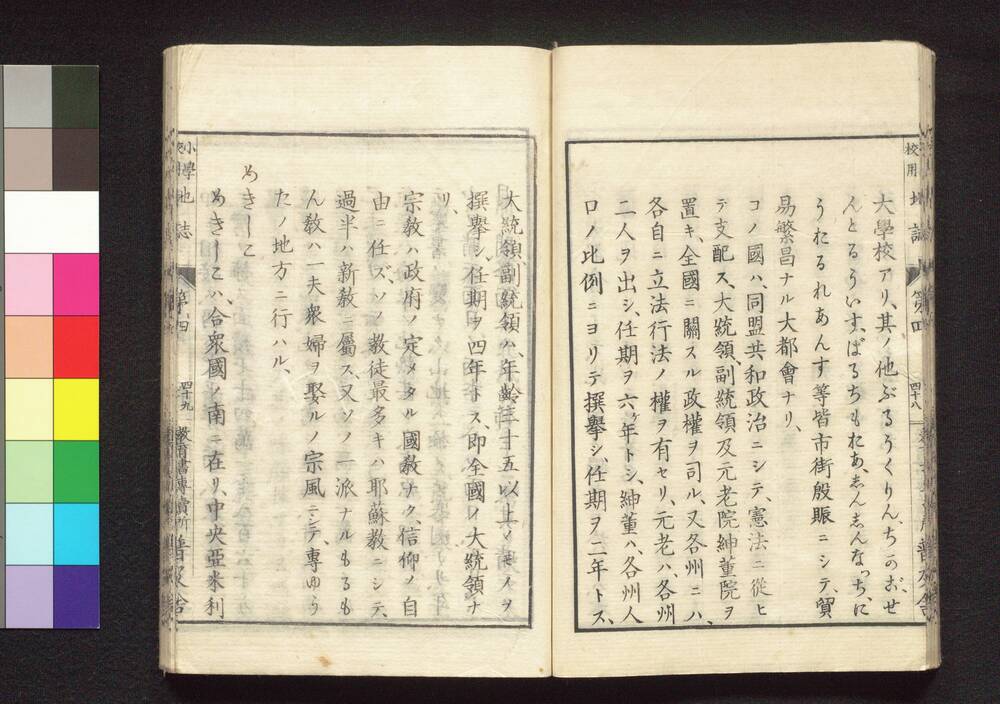 大學校アリ、其ノ他ぶるうくりん、ちのおせ
んとるういす、ばるちもわあ、しんしんなつち、に
うわるれあんす等皆市街殷賑ニシテ、貿
易繁昌ナル大都會ナリ、
コノ國ハ、同盟共和政治ニシテ、憲法ニ從ヒ
テ支配ス、大統領、副統領及元老院紳董院ヲ
置キ、全國ニ關スル政權ヲ司ル、又各州ニハ、
各自ニ立法行法ノ權ヲ有セリ、元老ハ、各州
二人ヲ出シ、任期ヲ六ケ年トシ、紳董ハ、各州人
口ノ比例ニヨリテ撰擧シ、任期ヲ二年トス、
校用 地誌 第四 四十八
大統領副統領ハ、年齡三十五以上ノモノヲ
撰擧シ、任期ヲ四年トス、即全國イ大統領ナ
リ、
宗敎ハ政府ノ定メタル國敎ナク、信仰ノ自
由ニ任ズ、ソノ敎徒最多キハ耶蘇敎ニシテ、
過半ハ新敎ニ屬ス、又ソノ一派ナルもるも
ん敎ハ一夫衆婦ヲ娶ルノ宗風ニシテ、專ゆう
たノ地方ニ行ハル、
めきしこ
めきしこハ、合衆國ノ南ニ在リ、中央亞米利
小學校用 地誌 第四 四十九 敎育書專賣所 普及舍